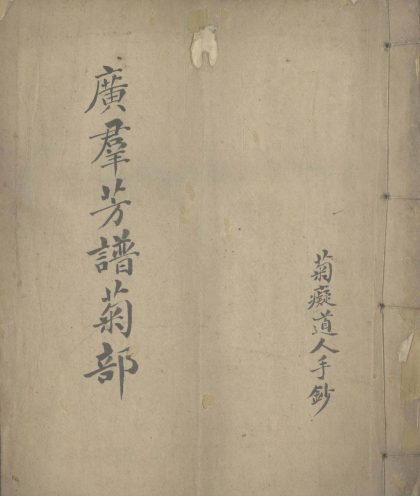 菊癡道人手鈔
廣羣芳譜菊部